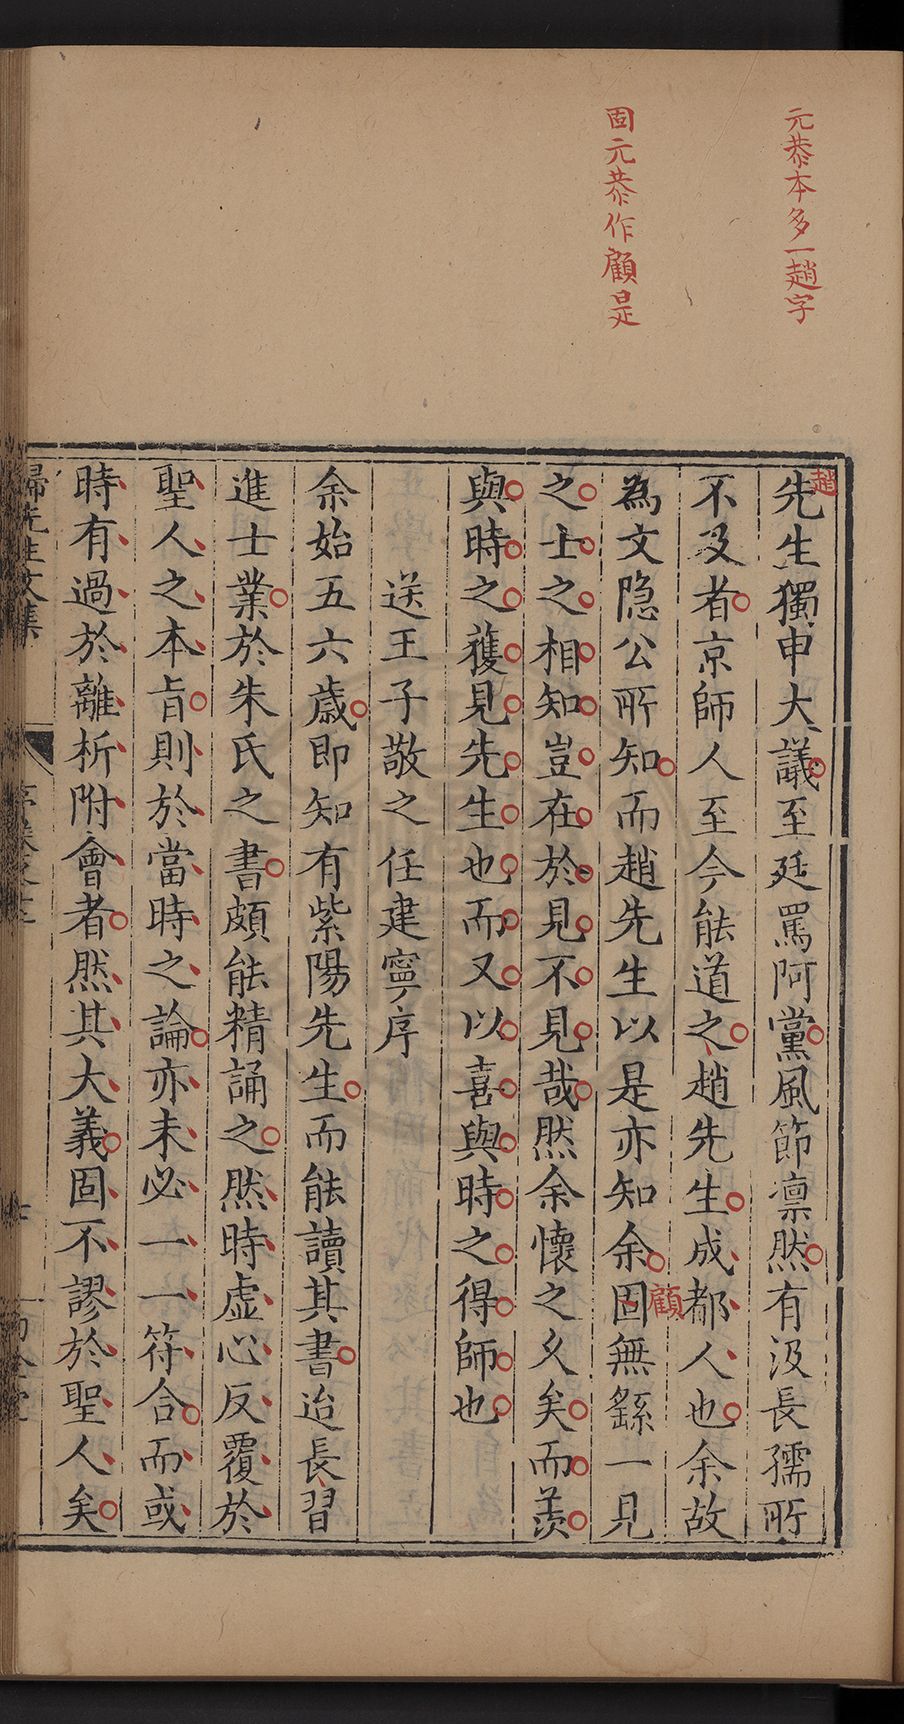 元恭本多一趙字
固元恭作顧是
趙
先生獨申大議至廷罵阿黨風節凛然有汲長孺所
不及者京師人至今能道之趙先生成都人也余故
為文隐公所知而趙先生以是亦知余固無繇一見
顧
之士之相知豈在於見不見哉然余懷之久矣而羨
與時之獲見先生也而又以喜與時之得師也
送王子敬之任建寧序
余始五六歲即知有紫陽先生而能讀其書迨長習
進士業於朱氏之書頗能精誦之然時虚心反覆於
聖人之本旨則於當時之論亦未必一一符合而或
時有過於離析附會者然其大義固不謬於聖人矣
歸先生文集